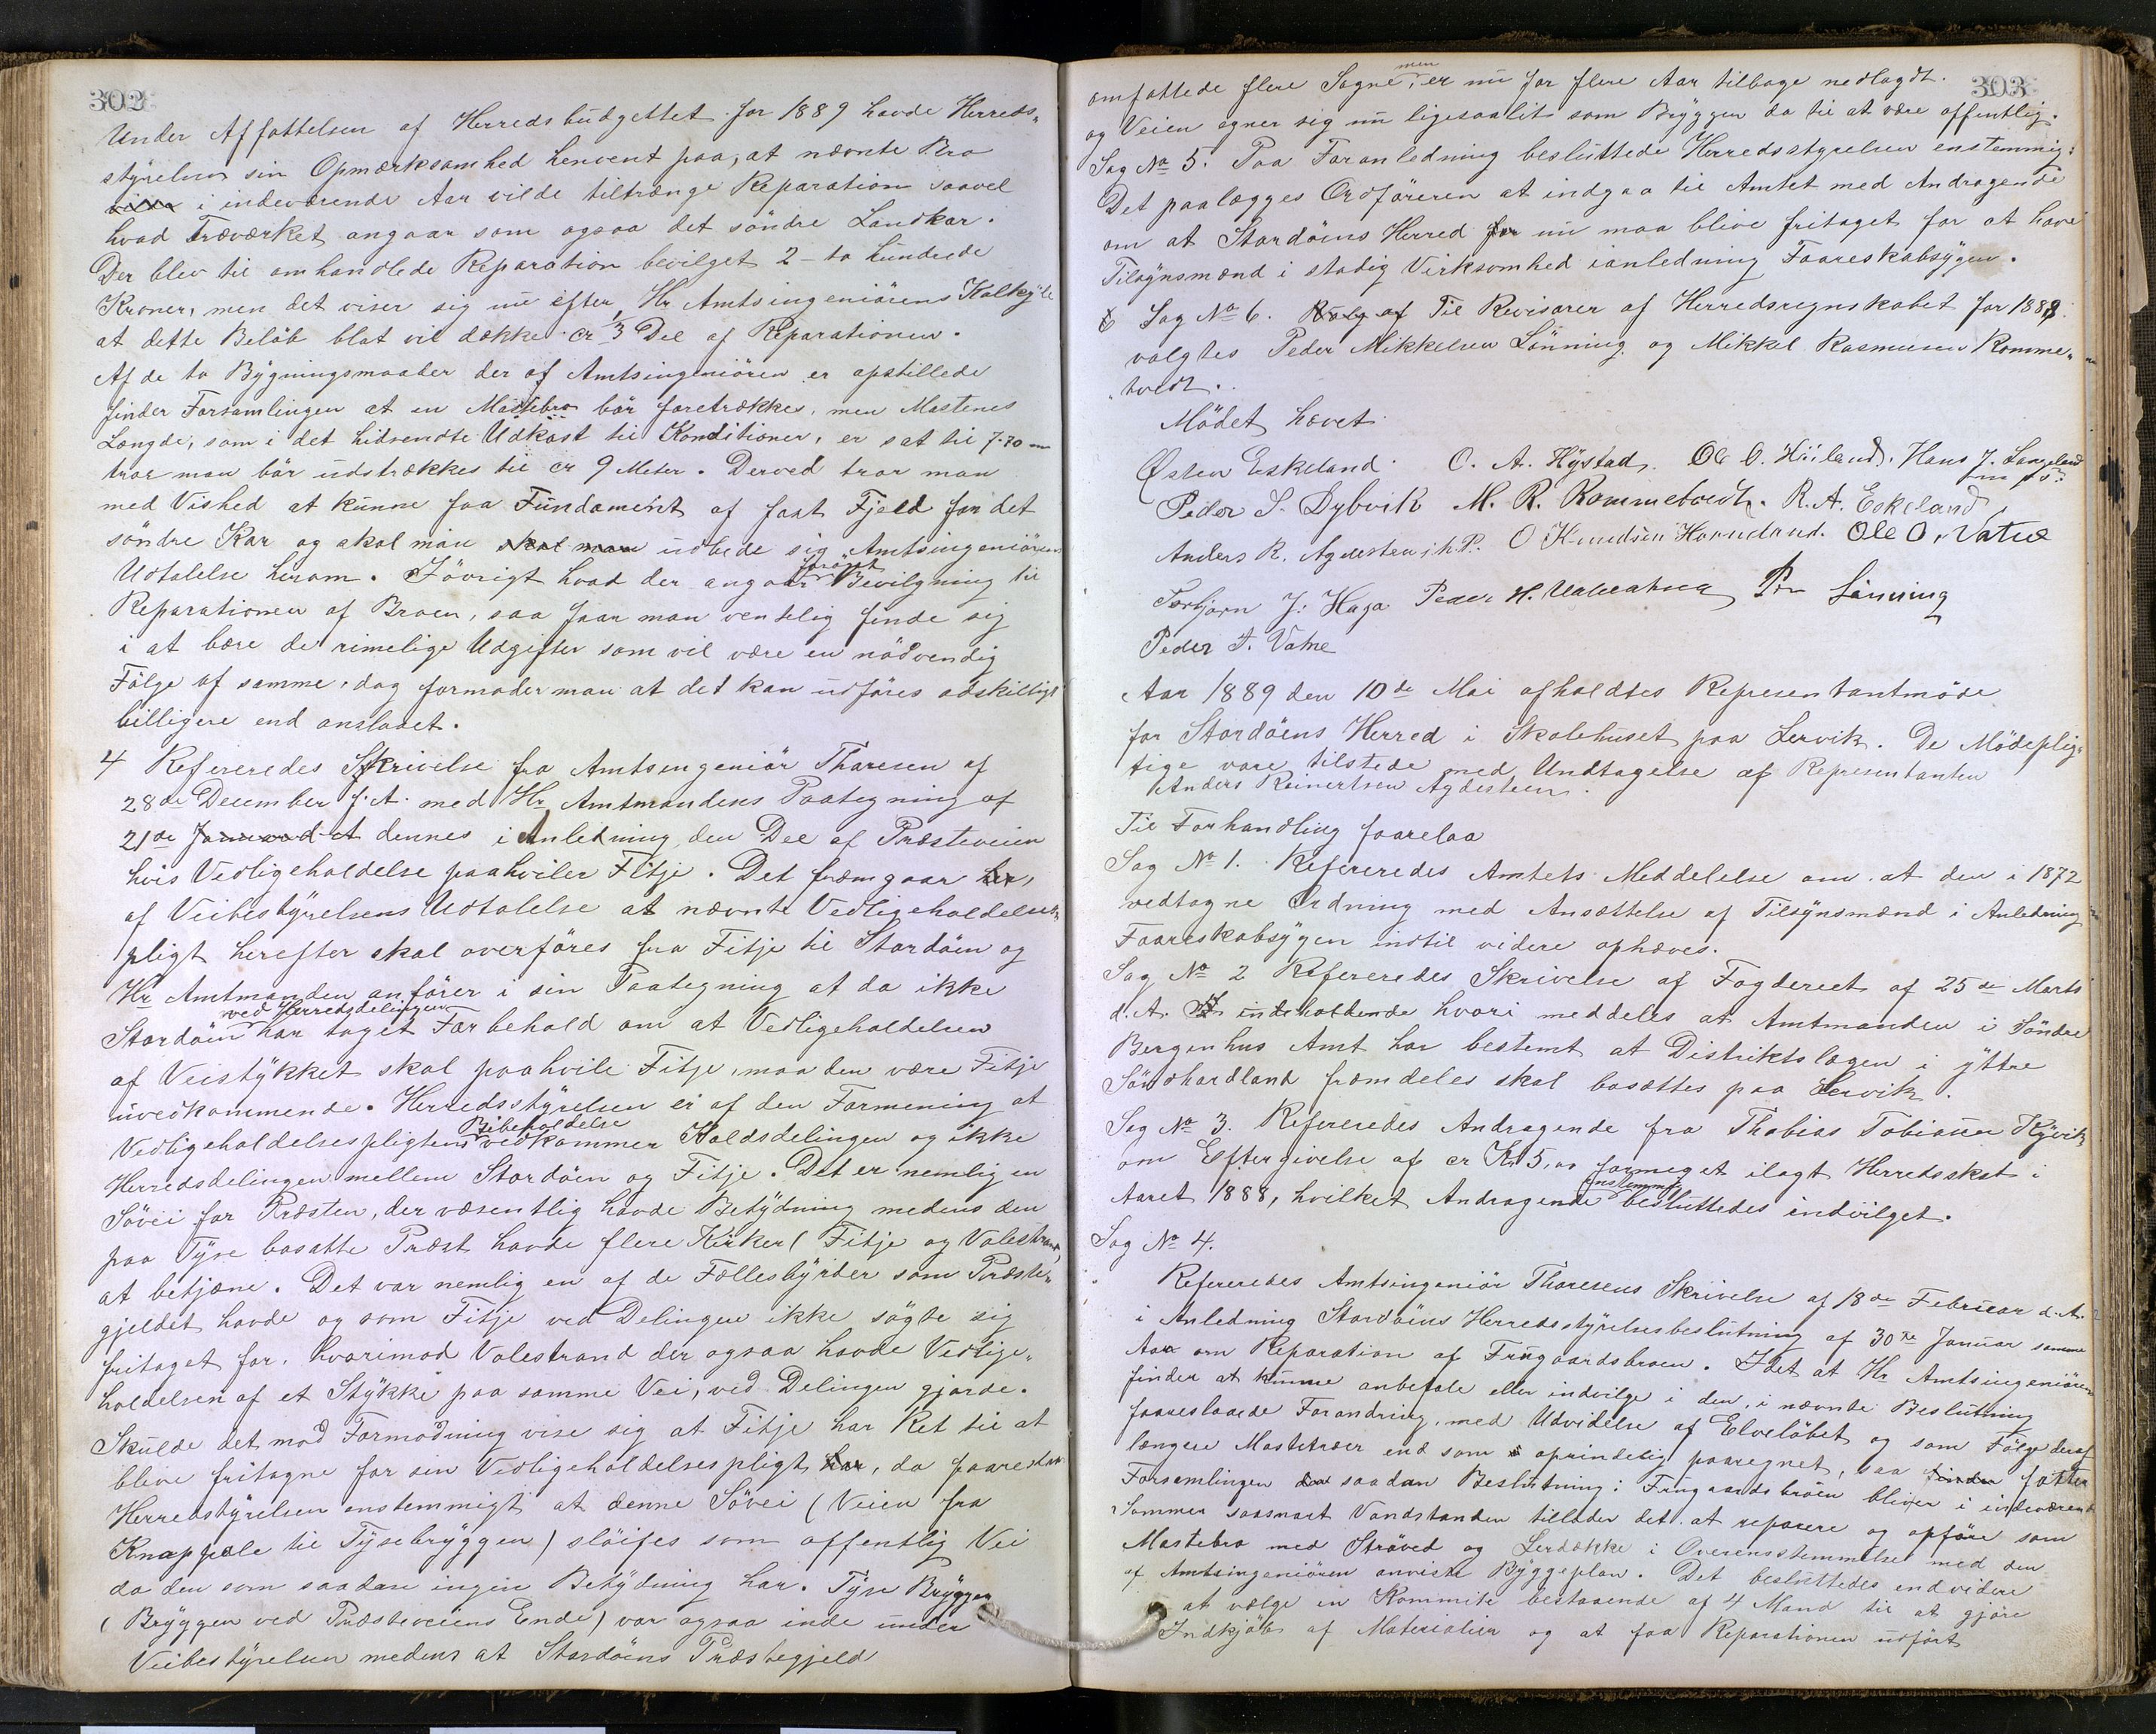 302
Under Affattelsen af Herredsbudgettet for 1889 havde Herreds„
styrelsen sin Opmærksomhed henvent paa, at nævnte Bro
i indeværende Aar vilde tiltrænge Reparation saavel
hvad Træværket angaar som ogsaa det söndre Landkar.
Der blev til omhandlede Reparation bevilget 2 - to hundrede
Kroner, men det viser sig nu efter Hr Amtsingeniörens Kalkyle
at dette Belöb blot vil dække cr 1/3 Del af Reparationen.
Af de to Bygningsmaader der af Amtsingeniören er opstillede
finder Forsamlingen at en Mastebro bör foretrækkes, men Mastenes
Længde, som i det hidsendte Udkast til Konditioner, er sat til 7.70 m
tror man bör udstrækkes til cr 9 Meter. Derved tror man
med Vished at kunne faa Fundament af fast Fjeld for det
söndre Kar og skal man skal man udbede sig Amtsingeniörens
Udtalelse herom. Iövrigt hvad der angaar foröget Bevilgning til
Reparationen af Broen, saa faar man ventelig finde sig
i at bære de rimelige Udgifter som vil være en nödvendig
Fölge af samme, dog formoder man at det kan udföres adskilligt
billigere end anslaaet.
4 Refereredes Skrivelse fra Amtsingeniör Thoresen af
28de December f. A. med Hr Amtmandens Paategning af
21de Januar d A dennes i Anledning den Del af Præsteveien
hvis Vedligeholdelse paahviler Fitje. Det fremgaar her,
af Veibestyrelsens Udtalelse at nævnte Vedligeholdelses„
pligt herefter skal overföres fra Fitje til Stordöen og
Hr Amtmanden anförer i sin Paategning at da ikke
Stordöen ved Herredsdelingen har taget Forbehold om at Vedligeholdelsen
af Veistykket skal paahvile Fitje, maa den være Fitje
uvedkommende. Herredsstyrelsen er af den Formening at
Vedligeholdelsespligtens Bibeholdelse vedkommer Kaldsdelingen og ikke
Herredsdelingen mellem Stordöen og Fitje. Det er nemlig en
Sövei for Præsten, der væsentlig havde Betydning medens den
paa Tyse bosatte Præst havde flere Kirker (Fitje og Valestrand)
at betjene. Det var nemlig en af de Fællesbyrder som Præste„
gjeldet havde og som Fitje ved Delingen ikke sögte sig
fritaget for, hvorimod Valestrand der ogsaa havde Vedlige„
holdelsen af et Stykke paa samme Vei, ved Delingen gjorde.
Skulde det mod Formodning vise sig at Fitje har Ret til at
blive fritagne for sin Vedligeholdelsespligt her, da foareslaar
Herredsstyrelsen enstemmigt at denne Sövei (Veien fra
Knappele til Tysebryggen) slöifes som offentlig Vei
da den som saadan ingen Betydning har. Tyse Bryggen
(Bryggen ved Præsteveiens Ende) var ogsaa inde under
Veibestyrelsen medens at Stordöens Præstegjeld
303
omfattede flere Sogne, men er nu for flere Aar tilbage nedlagdt.
og Veien egner sig nu ligesaalit som Bryggen da til at være offentlig.
Sag No 5. Paa Foranledning besluttede Herredsstyrelsen enstemmig:
Det paalægges Ordföreren at indgaa til Amtet med Andragende
om at Stordöens Herred for nu maa blive fritaget for at have
Tilsynsmænd i stadig Virksomhed ianledning Faareskabsygen.
Sag No 6. Valg af Til Revisorer af Herredsregnskabet for 1888
valgtes Peder Mikkelsen Lönning og Mikkel Rasmusen Romme„
tvedt.
Mödet hævet
Østen Eskeland. O. A. Hystad. Ole O. Hüland. Hans J. Langeland
Peder S. Dybvik M. R. Rommetvedt. R. A. Eskeland
Anders R. Agdesten j.h.P. O Knudsen Horneland. Ole O. Vatne
Torbjörn J. Haga Peder H. Lönning
Peder T. Vatne
Aar 1889 den 10de Mai afholdtes Representantmöde
for Stordöens Herred i Skolehuset paa Lervik. De Mödeplig„
tige vare tilstede med Undtagelse af Representanten
Anders Reinertsen Agdesteen.
Til Forhandling foorelaa
Sag No 1. Refereredes Amtets Meddelelse om at den i 1872
vedtagne Ordning med Ansættelse af Tilsynsmænd i Anledning
Faareskabsygen indtil videre ophæves.
Sag No 2 Refereredes Skrivelse af Fogderiet af 25de Marts
d. A. indeholdende hvori meddeles at Amtmanden i Söndre
Bergenhus Amt har bestemt at Distriktslægen i yttre
Söndhordland fremdeles skal bosættes paa Lervik.
Sag No 3. Refereredes Andragende fra Thobias Tobiasen Kyvik
om Eftergivelse af cr Kr 5,00 formeget ilagt Herredsskat i
Aaret 1888, hvilket Andragende enstemmig besluttedes indvilget.
Sag No 4.
Refereredes Amtsingeniör Thoresens Skrivelse af 18de Februar d. A.
i Anledning Stordöens Herredsstyrelsesbeslutning af 30te Januar samme
Aar om Reparation af Frugaardsbroen. Idet at Hr Amtsingeniören
finder at kunne anbefale eller indvilge i den, i nævnte Beslutning
foareslaaede Forandring, med Udvidelse af Elvelöbet og som Fölge deraf
længere Mastetræer end som oprindelig paaregnet, saa finder fatter
Forsamlingen saadan Beslutning: Frugaardsbroen bliver i indeværende
Sommer saasnart Vandstanden tillader det at reparere og opföre som
Mastebro med Ströved og Lerdække i Overensstemmelse med den
af Amtsingeniören anviste Byggeplan. Det besluttedes endvidere
at vælge en Kommite bestaaende af 4 Mand til at gjöre
Indkjöb af Materialier og at faa Reparationen udfört